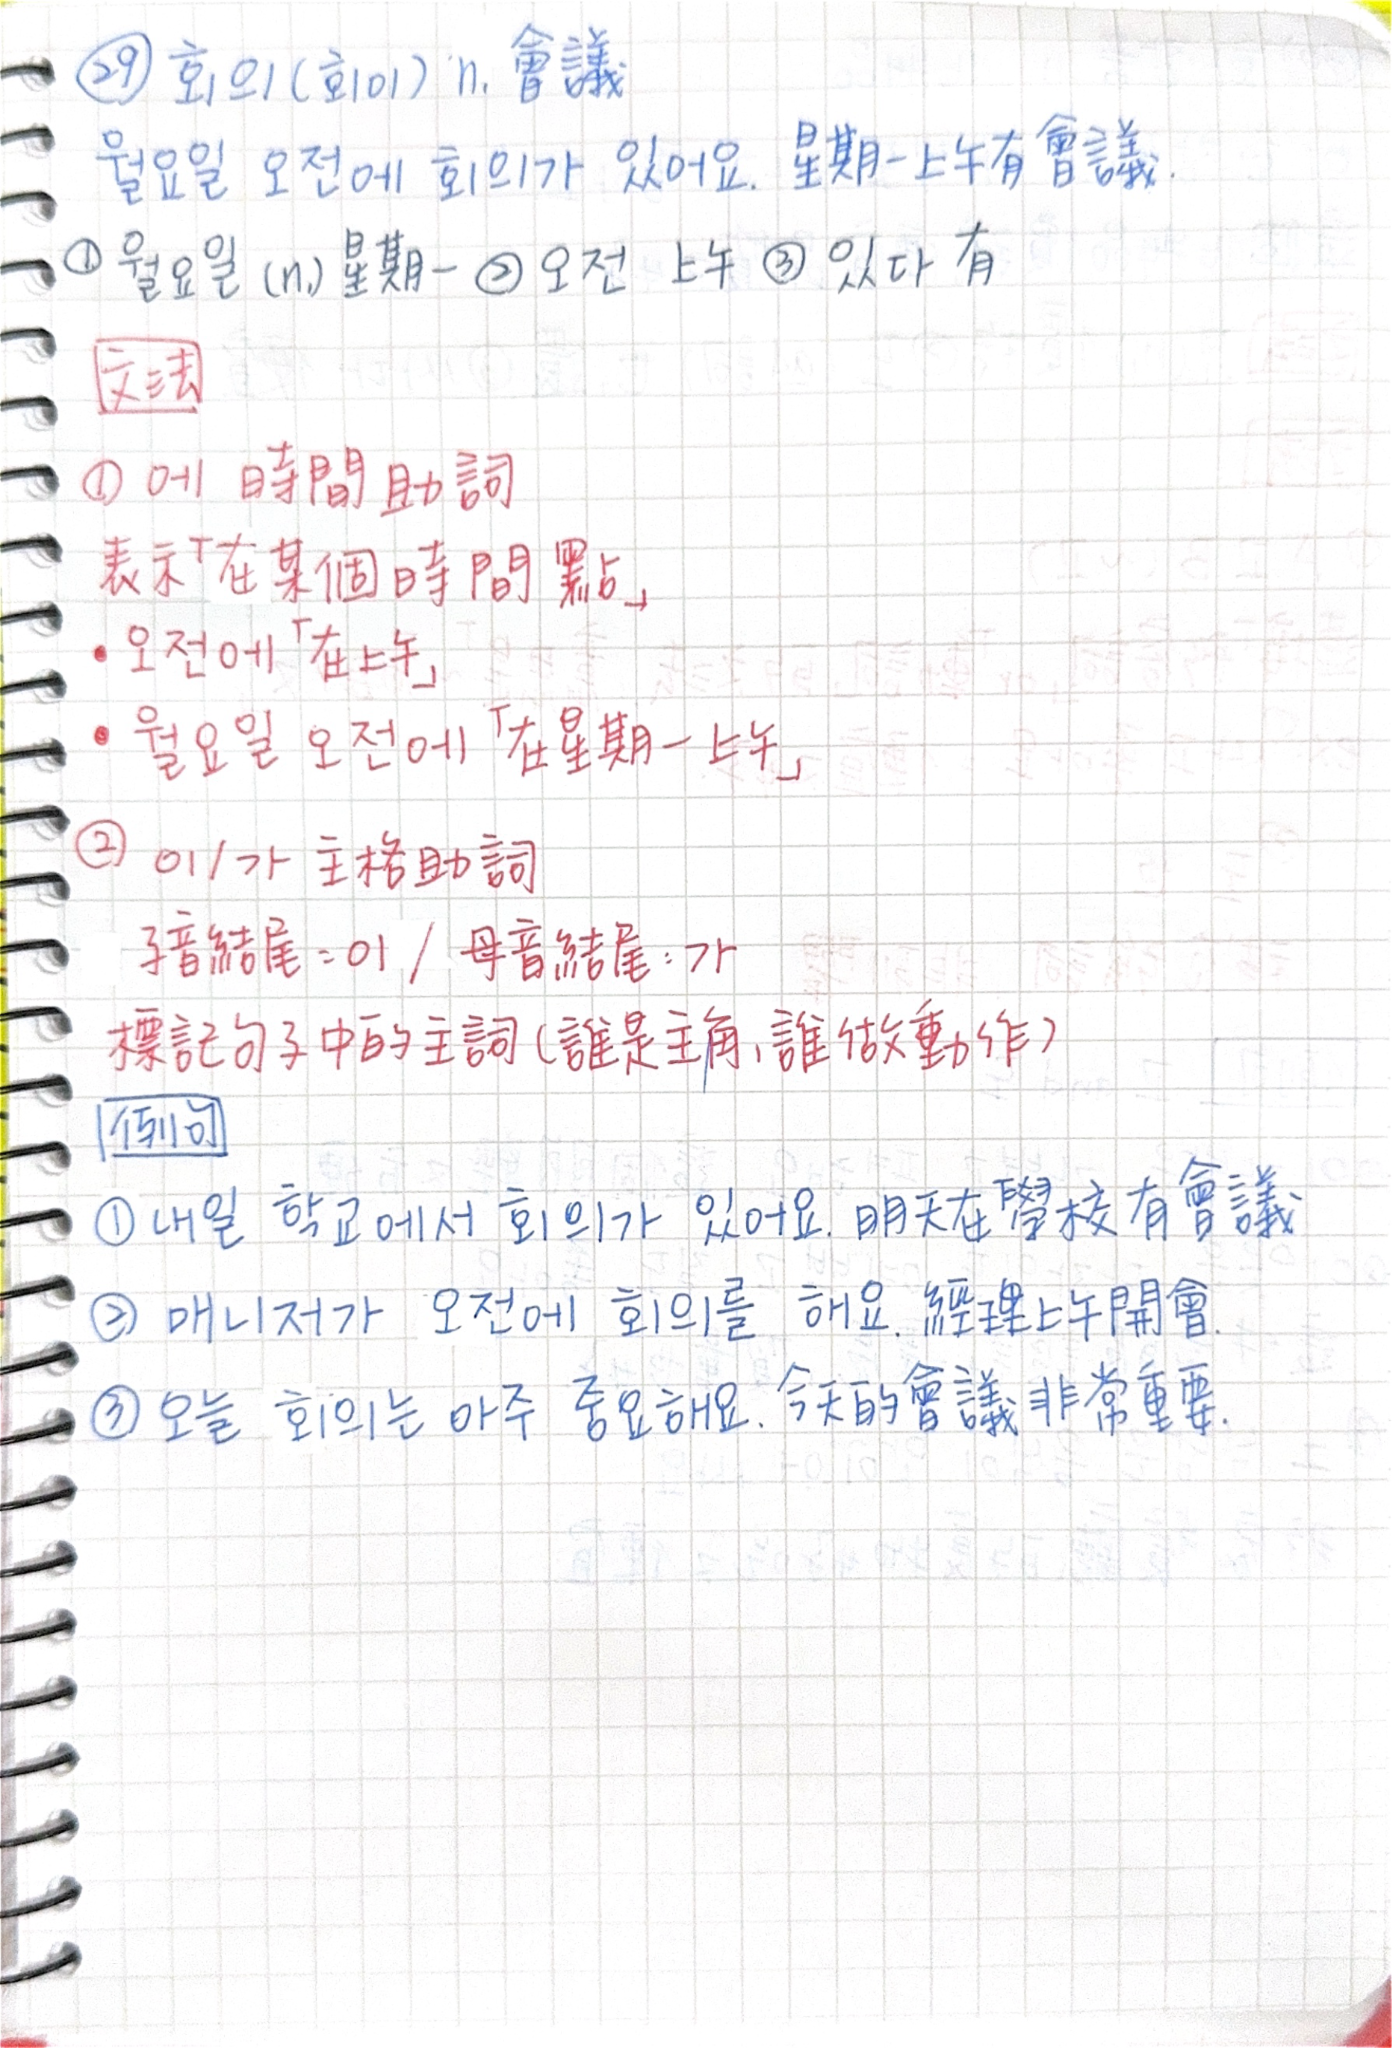 ㉙ 회의(회이) n. 會議
월요일 오전에 회의가 있어요. 星期一上午有會議.
① 월요일 (n.) 星期一 ② 오전 上午 ③ 있다 有
文法
① 에 時間助詞
表示「在某個時間點」
• 오전에「在上午」
• 월요일 오전에「在星期一上午」
② 이/가 主格助詞
子音結尾:이 / 母音結尾:가
標記句子中的主詞(誰是主角、誰做動作)
例句
① 내일 학교에서 회의가 있어요. 明天在學校有會議
② 매니저가 오전에 회의를 해요. 經理上午開會.
③ 오늘 회의는 아주 중요해요. 今天的會議非常重要.